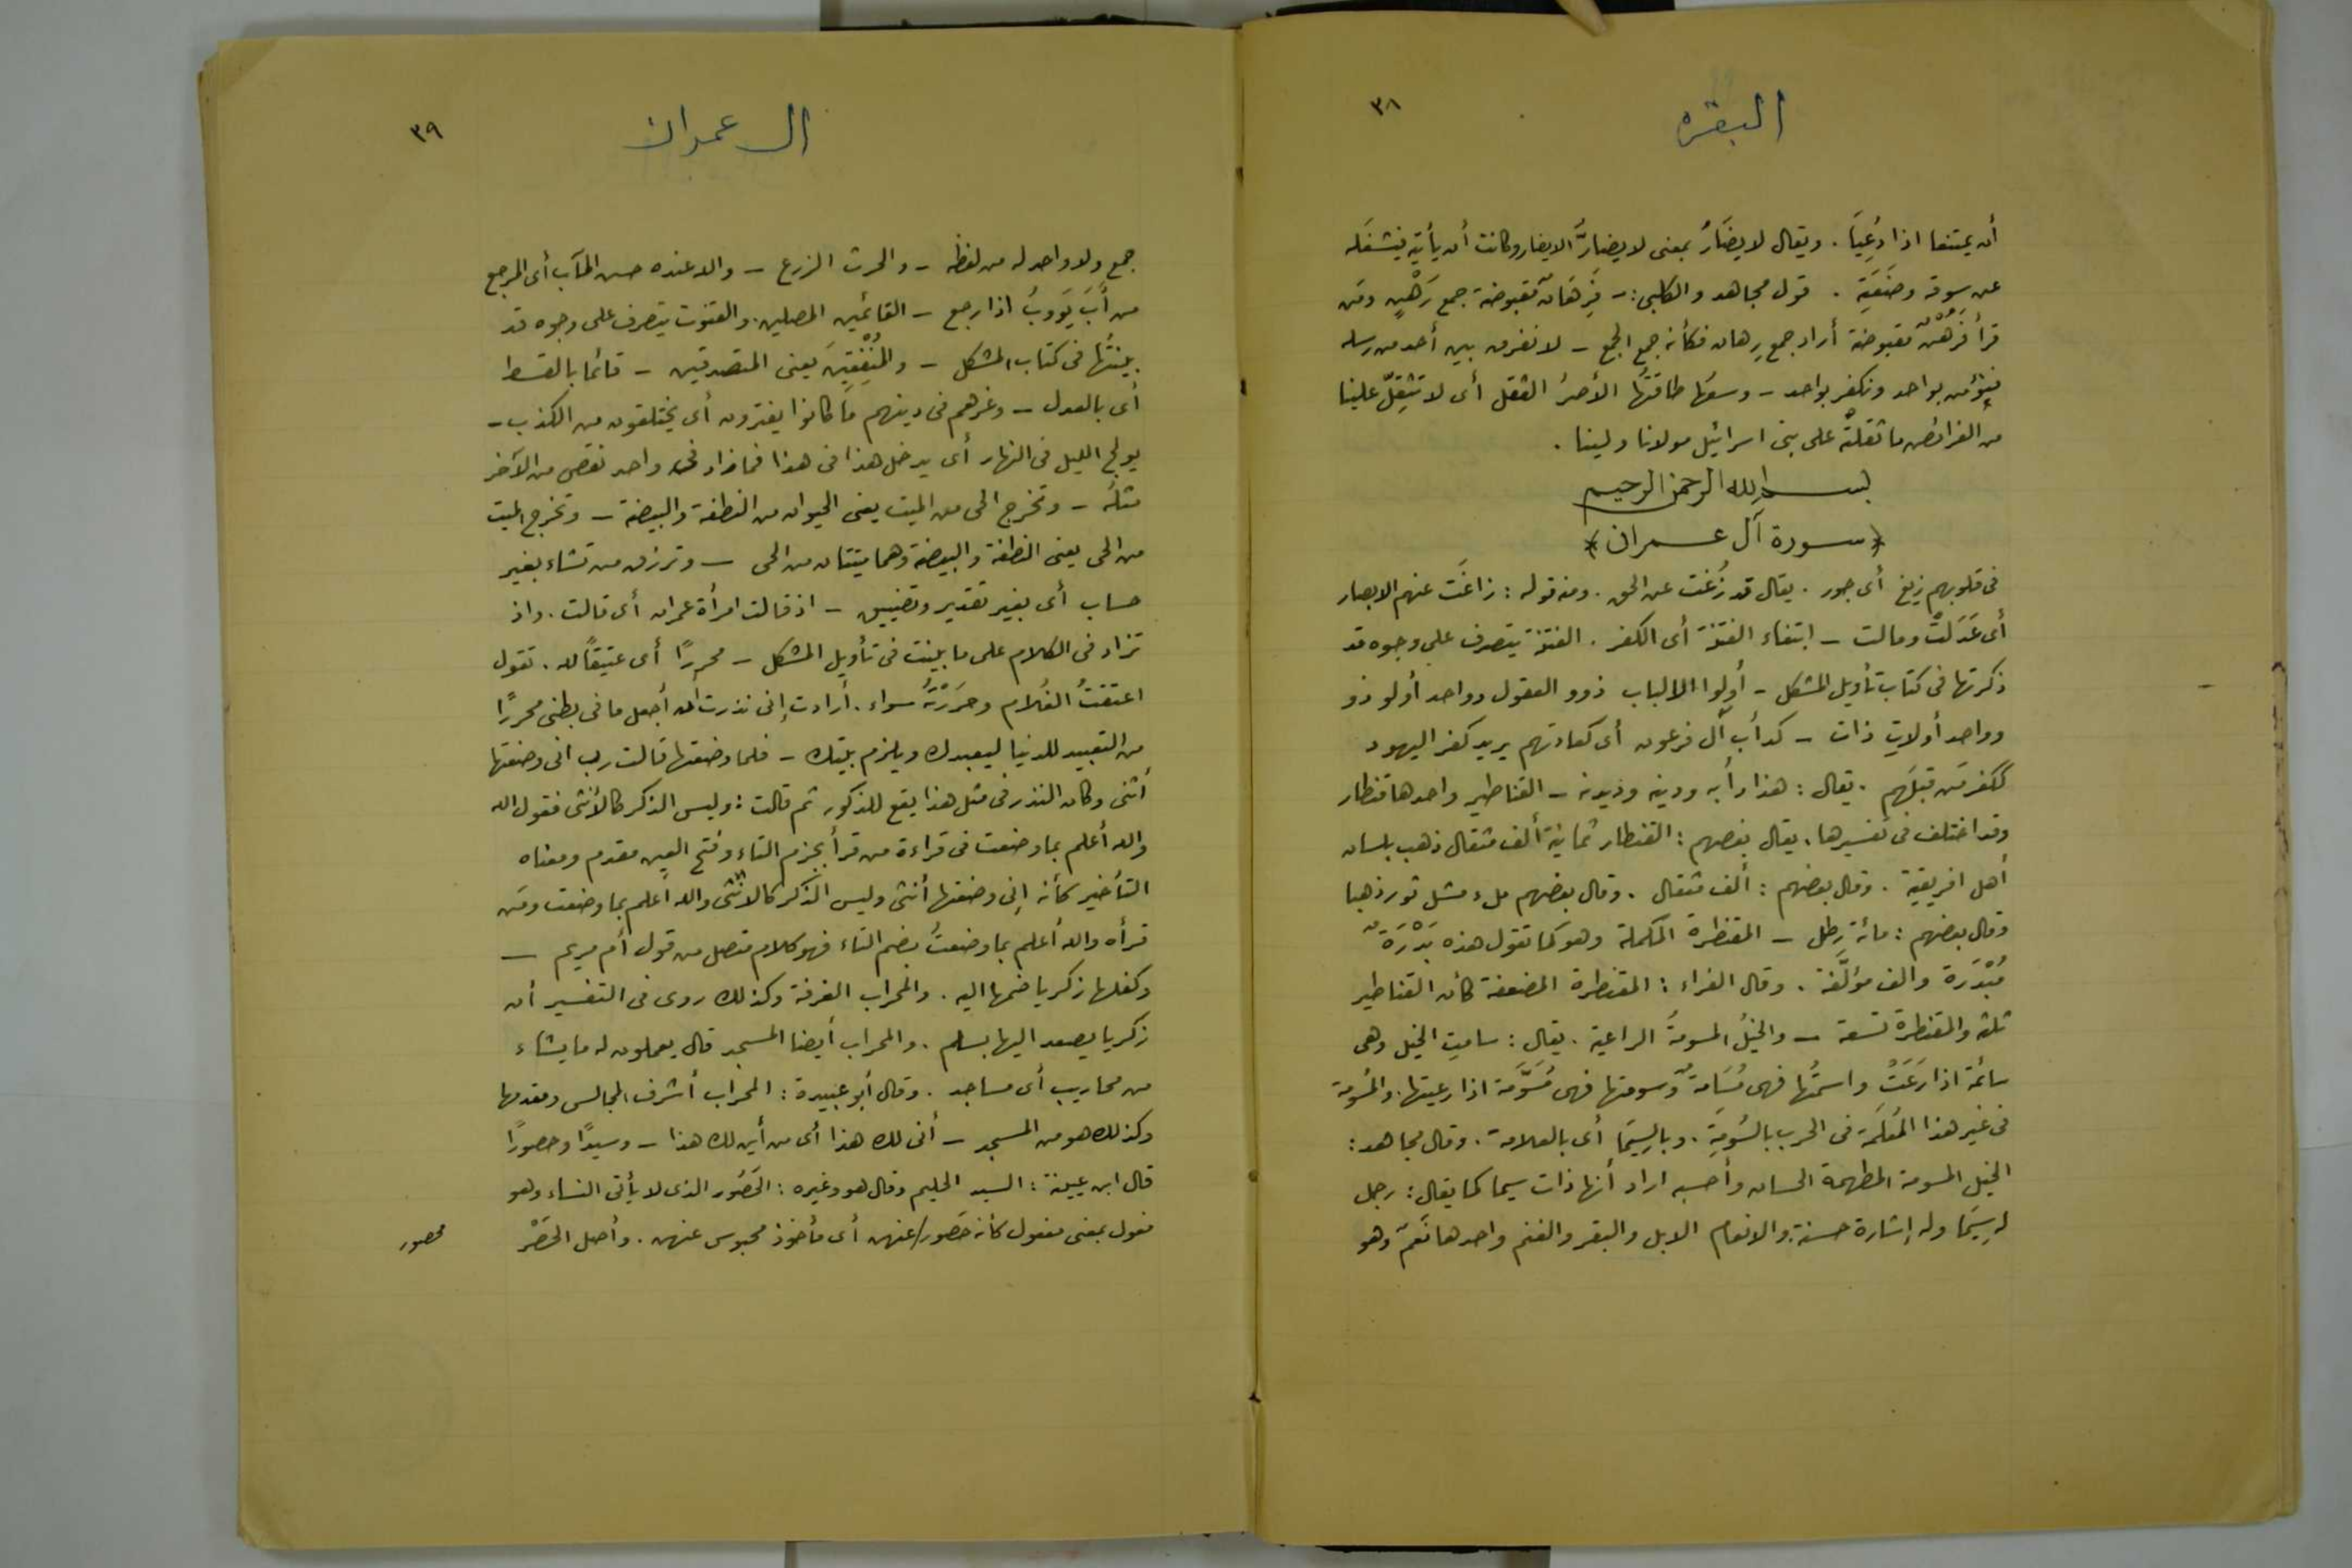 ٣٨
البقره
أن يمتنعا اذا دُعِيَا . ويقال لا يضَارُ بمعنى لا يضارَّ الايضار وكانت أن يأتيه فيشغَله
عن سوقه وضَيعَتِهِ . قول مجاهد والكلبى :- فَرِهَانٌ مقبوضة جمع رَهْنٍ ومَن
قرأ فَرُهُنٌ مقبوضة أراد جمع رِهان فكأنه جمع الجمع - لا نفرق بين أحد من رسله
فنؤمن بواحد ونكفر بواحد - وسعَها طاقَتَها الأصرُ الثقل أى لا تثِقلّ علينا
من الفرائض ما ثقلتَهُ على بنى اسرائيل مولانا ولينا .
بسم الله الرحمن الرحيم
﴿ سورة آل عمران ﴾
فى قلوبهم زيغ أى جور . يقال قد زُغتَ عن الحق . ومنه قوله : زاغَت عنهم الابصار
أى عَدَلتْ ومالت - ابتغاء الفتنة أى الكفر . الفتنة يتصرف على وجوه قد
ذكرتها فى كتاب تأويل المشكل - أولوا الالباب ذوو العقول وواحد أولو ذو
وواحد أولاتِ ذات - كدأب آل فرعون أى كعادتهم يريد كفر اليهود
ككفر مَن قبلَهم . يقال : هذا دأبه ودينه وديدنه - القناطير واحدها قنطار
وقد اختلف فى تفسيرها . يقال بعضهم : القنطار ثمانية ألف مثقال ذهب بلسان
أهل افريقية . وقال بعضهم : ألف مثقال . وقال بعضهم ملء مسك ثور ذهبا
وقال بعضهم : مائة رِطل - المقنطرة المكملة وهو كما تقول هذه بَدْرَةٌ
مُبْدَرَة والف مؤلَّفة . وقال الفراء : المقنطرة المضعفة كأن القناطير
ثلثة والمقنطرة تسعة - والخيلُ المسومةُ الراعية . يقال : سامتِ الخيل وهى
سائمة اذا رَعَتْ واسمتُها فهى مُسَامةٌ وسومتها فهى مُسَوَّمة اذا رعيتها . والمسُومة
فى غير هذا المُعلَمَة فى الحرب بالسُومَةِ . وبالسِيمَا أى بالعلامة . وقال مجاهد :
الخيل المسومة المطهمة الحسان وأحسبه اراد أنها ذات سيما كما يقال : رجل
له سِيمَا وله إشارة حسنة والانعام الابل والبقر والغنم واحدها نَعَم وهو
٣٩
ال عمران
جمع ولا واحد له من لفظه - والحرث الزرع - والله عنده حسن المآب أى المرجع
من أَبَ يَوَوبُ اذا رجع - القانتين المصلين . والقنوت يتصرف على وجوه قد
بينتُها فى كتاب المشكل - والمُنْفِقِينَ يعنى المتصدقين - قائما بالقسط
أى بالعدل - وغرهم فى دينهم مَا كانوا يفترون أى يختلقون من الكذب -
يولج الليل فى النهار أى يدخل هذا فى هذا فما زاد فى واحد نقص من الآخر
مثلَه - وتخرج الحى من الميت يعنى الحيوان من النطفة والبيضة - وتخرج الميت
من الحى يعنى النطفة والبيضة وهما ميتتان من الحى - وترزق من تشاء بغير
حساب أى بغير تقدير وتضييق - اذ قالت امرأة عمران أى قالت . واذ
تزاد فى الكلام على ما بينت فى تأويل المشكل - محررًا أى عتيقًا لله . تقول
اعتقتُ الغلام وحَرَرْتُهُ سواء . أرادت إنى نذرت أن أجعل ما فى بطنى محررًا
من التعبيد للدنيا ليعبدك ويلزم بيتك - فلما وضعتها قالت رب انى وضعتها
أنثى وكان النذر فى مثل هذا يقع للذكور ثم قالت : وليس الذكر كالأنثى فقول الله
والله أعلم بما وضعت فى قراءة من قرأ بجزم التاء وفتح العين مقدم ومعناه
التأخير كأنه إنى وضعتها أنثى وليس الذكر كالانثى والله أعلم بما وضعت ومَن
قرأه والله أعلم بما وضعتُ بضم التاء فهو كلام متصل من قول أم مريم -
وكفلها زكريا ضمها اليه . والمحراب الغرفة وكذلك روى فى التفسير أن
زكريا يصعد اليها بسلم . والمحراب أيضا المسجد قال يعملون له ما يشاء
من محاريب أى مساجد . وقال أبو عبيدة : المحراب أشرف المجالس ومقدمها
وكذلك هو من المسجد - أنى لك هذا أى من أين لك هذا - وسيدًا وحصورًا
قال ابن عيينة : السيد الحليم وقال هو وغيره : الحَصُور الذى لا يأتى النساء وهو
فعول بمعنى مفعول كأنه حَصُور/عنهن أى مأخوذ محبوس عنهن . وأصل الحَصْر
محصور